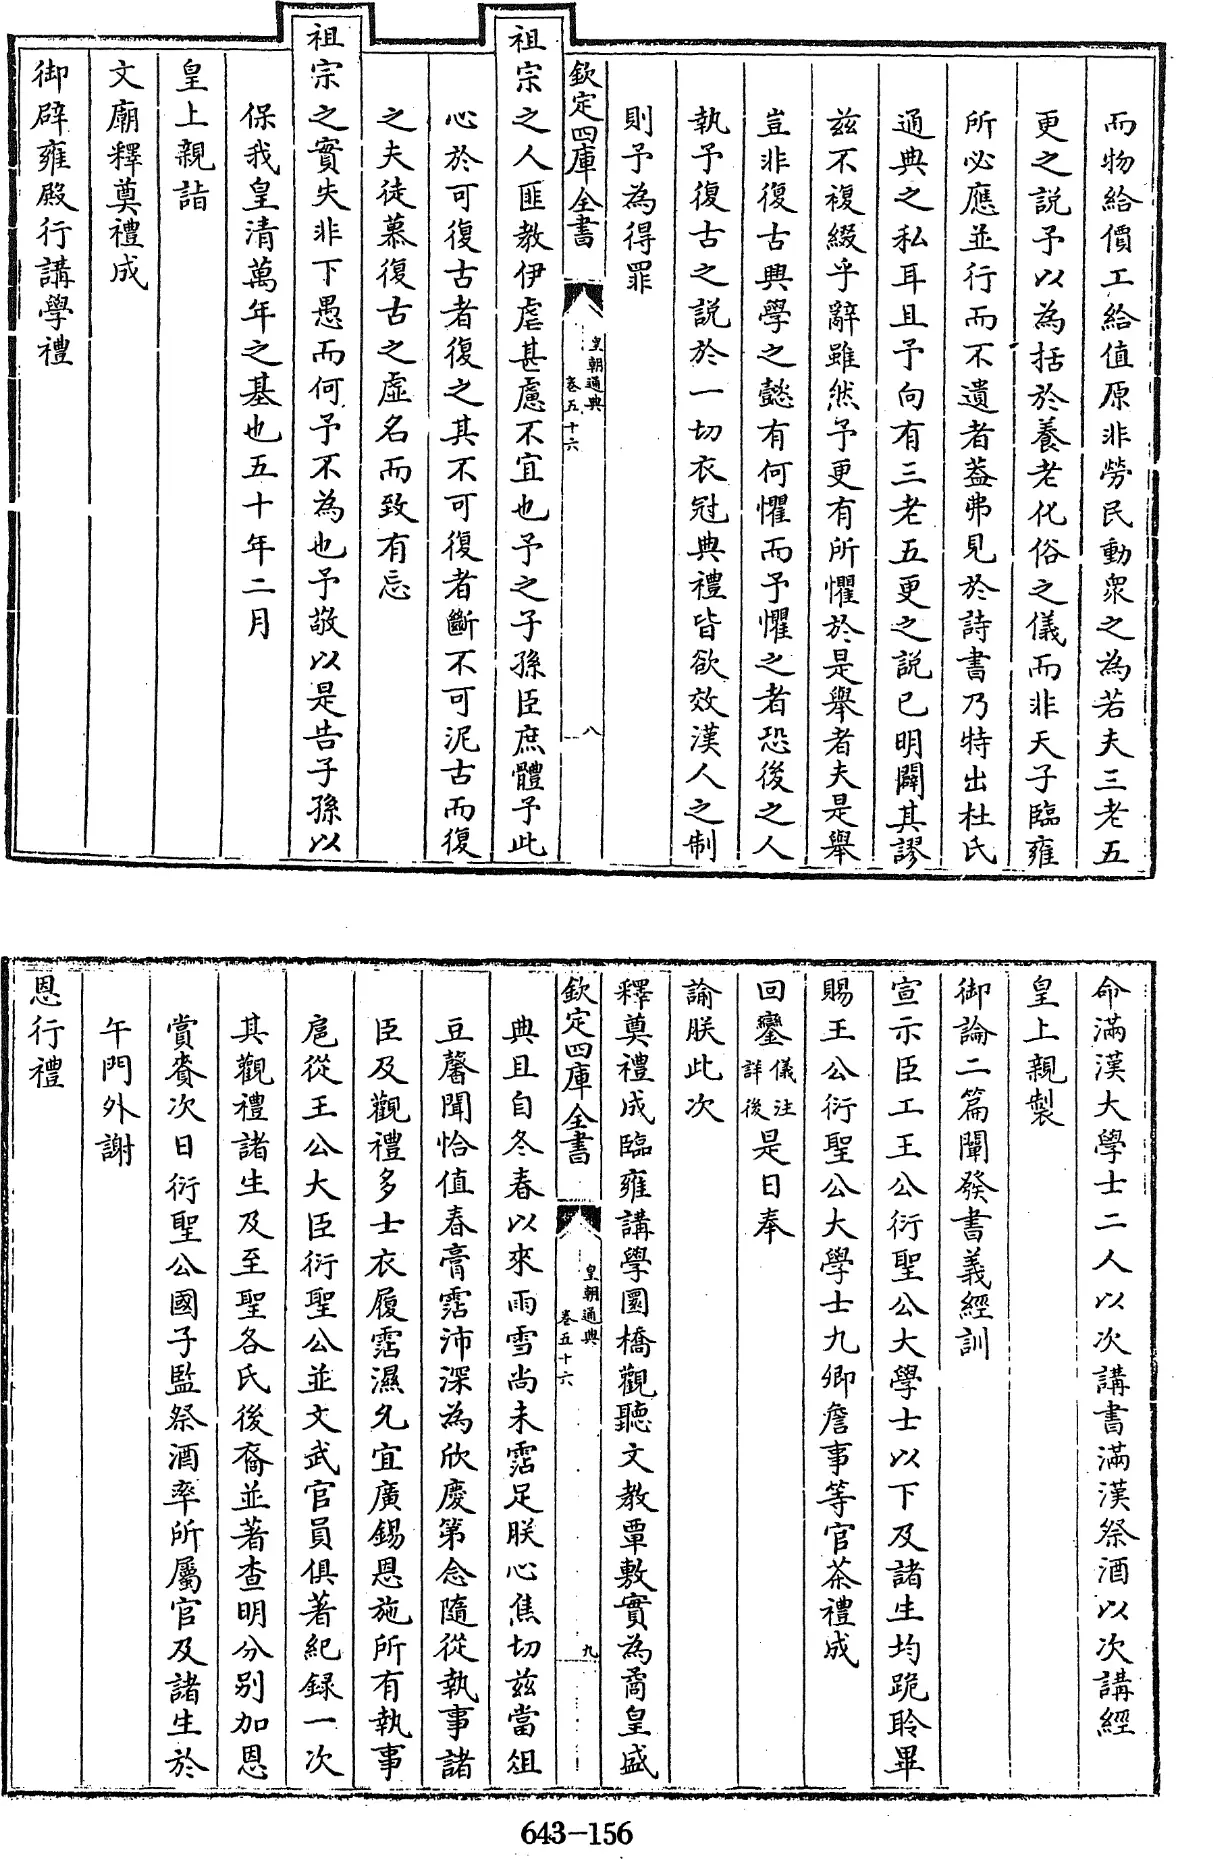 而物給價工給值原非勞民動衆之為若夫三老五
更之説予以為括於養老化俗之儀而非天子臨雍
所必應並行而不遺者葢弗見於詩書乃特出杜氏
通典之私耳且予向有三老五更之説已明闢其謬
兹不複綴乎辭雖然予更有所懼於是舉者夫是舉
豈非復古興學之懿有何懼而予懼之者恐後之人
執予復古之説於一切衣冠典禮皆欲效漢人之制
則予為得罪
欽定四庫全書
皇朝通典
卷五十六
八
祖宗之人匪教伊虐甚慮不宜也予之子孫臣庶體予此
心於可復古者復之其不可復者斷不可泥古而復
之夫徒慕復古之虛名而致有忘
祖宗之實失非下愚而何予不為也予敬以是告子孫以
保我皇清萬年之基也五十年二月
皇上親詣
文廟釋奠禮成
御辟雍殿行講學禮
命滿漢大學士二人以次講書滿漢祭酒以次講經
皇上親製
御論二篇闡發書義經訓
宣示臣工王公衍聖公大學士以下及諸生均跪聆畢
賜王公衍聖公大學士九卿詹事等官茶禮成
回鑾儀注詳後是日奉
諭朕此次
釋奠禮成臨雍講學圜橋觀聽文教覃敷實為矞皇盛
欽定四庫全書
皇朝通典
卷五十六
九
典且自冬春以來雨雪尚未霑足朕心焦切兹當俎
豆馨聞恰值春膏霑沛深為欣慶第念隨從執事諸
臣及觀禮多士衣履霑濕允宜廣錫恩施所有執事
扈從王公大臣衍聖公並文武官員俱著紀録一次
其觀禮諸生及至聖各氏後裔並著查明分别加恩
賞賚次日衍聖公國子監祭酒率所屬官及諸生於
午門外謝
恩行禮
643-156